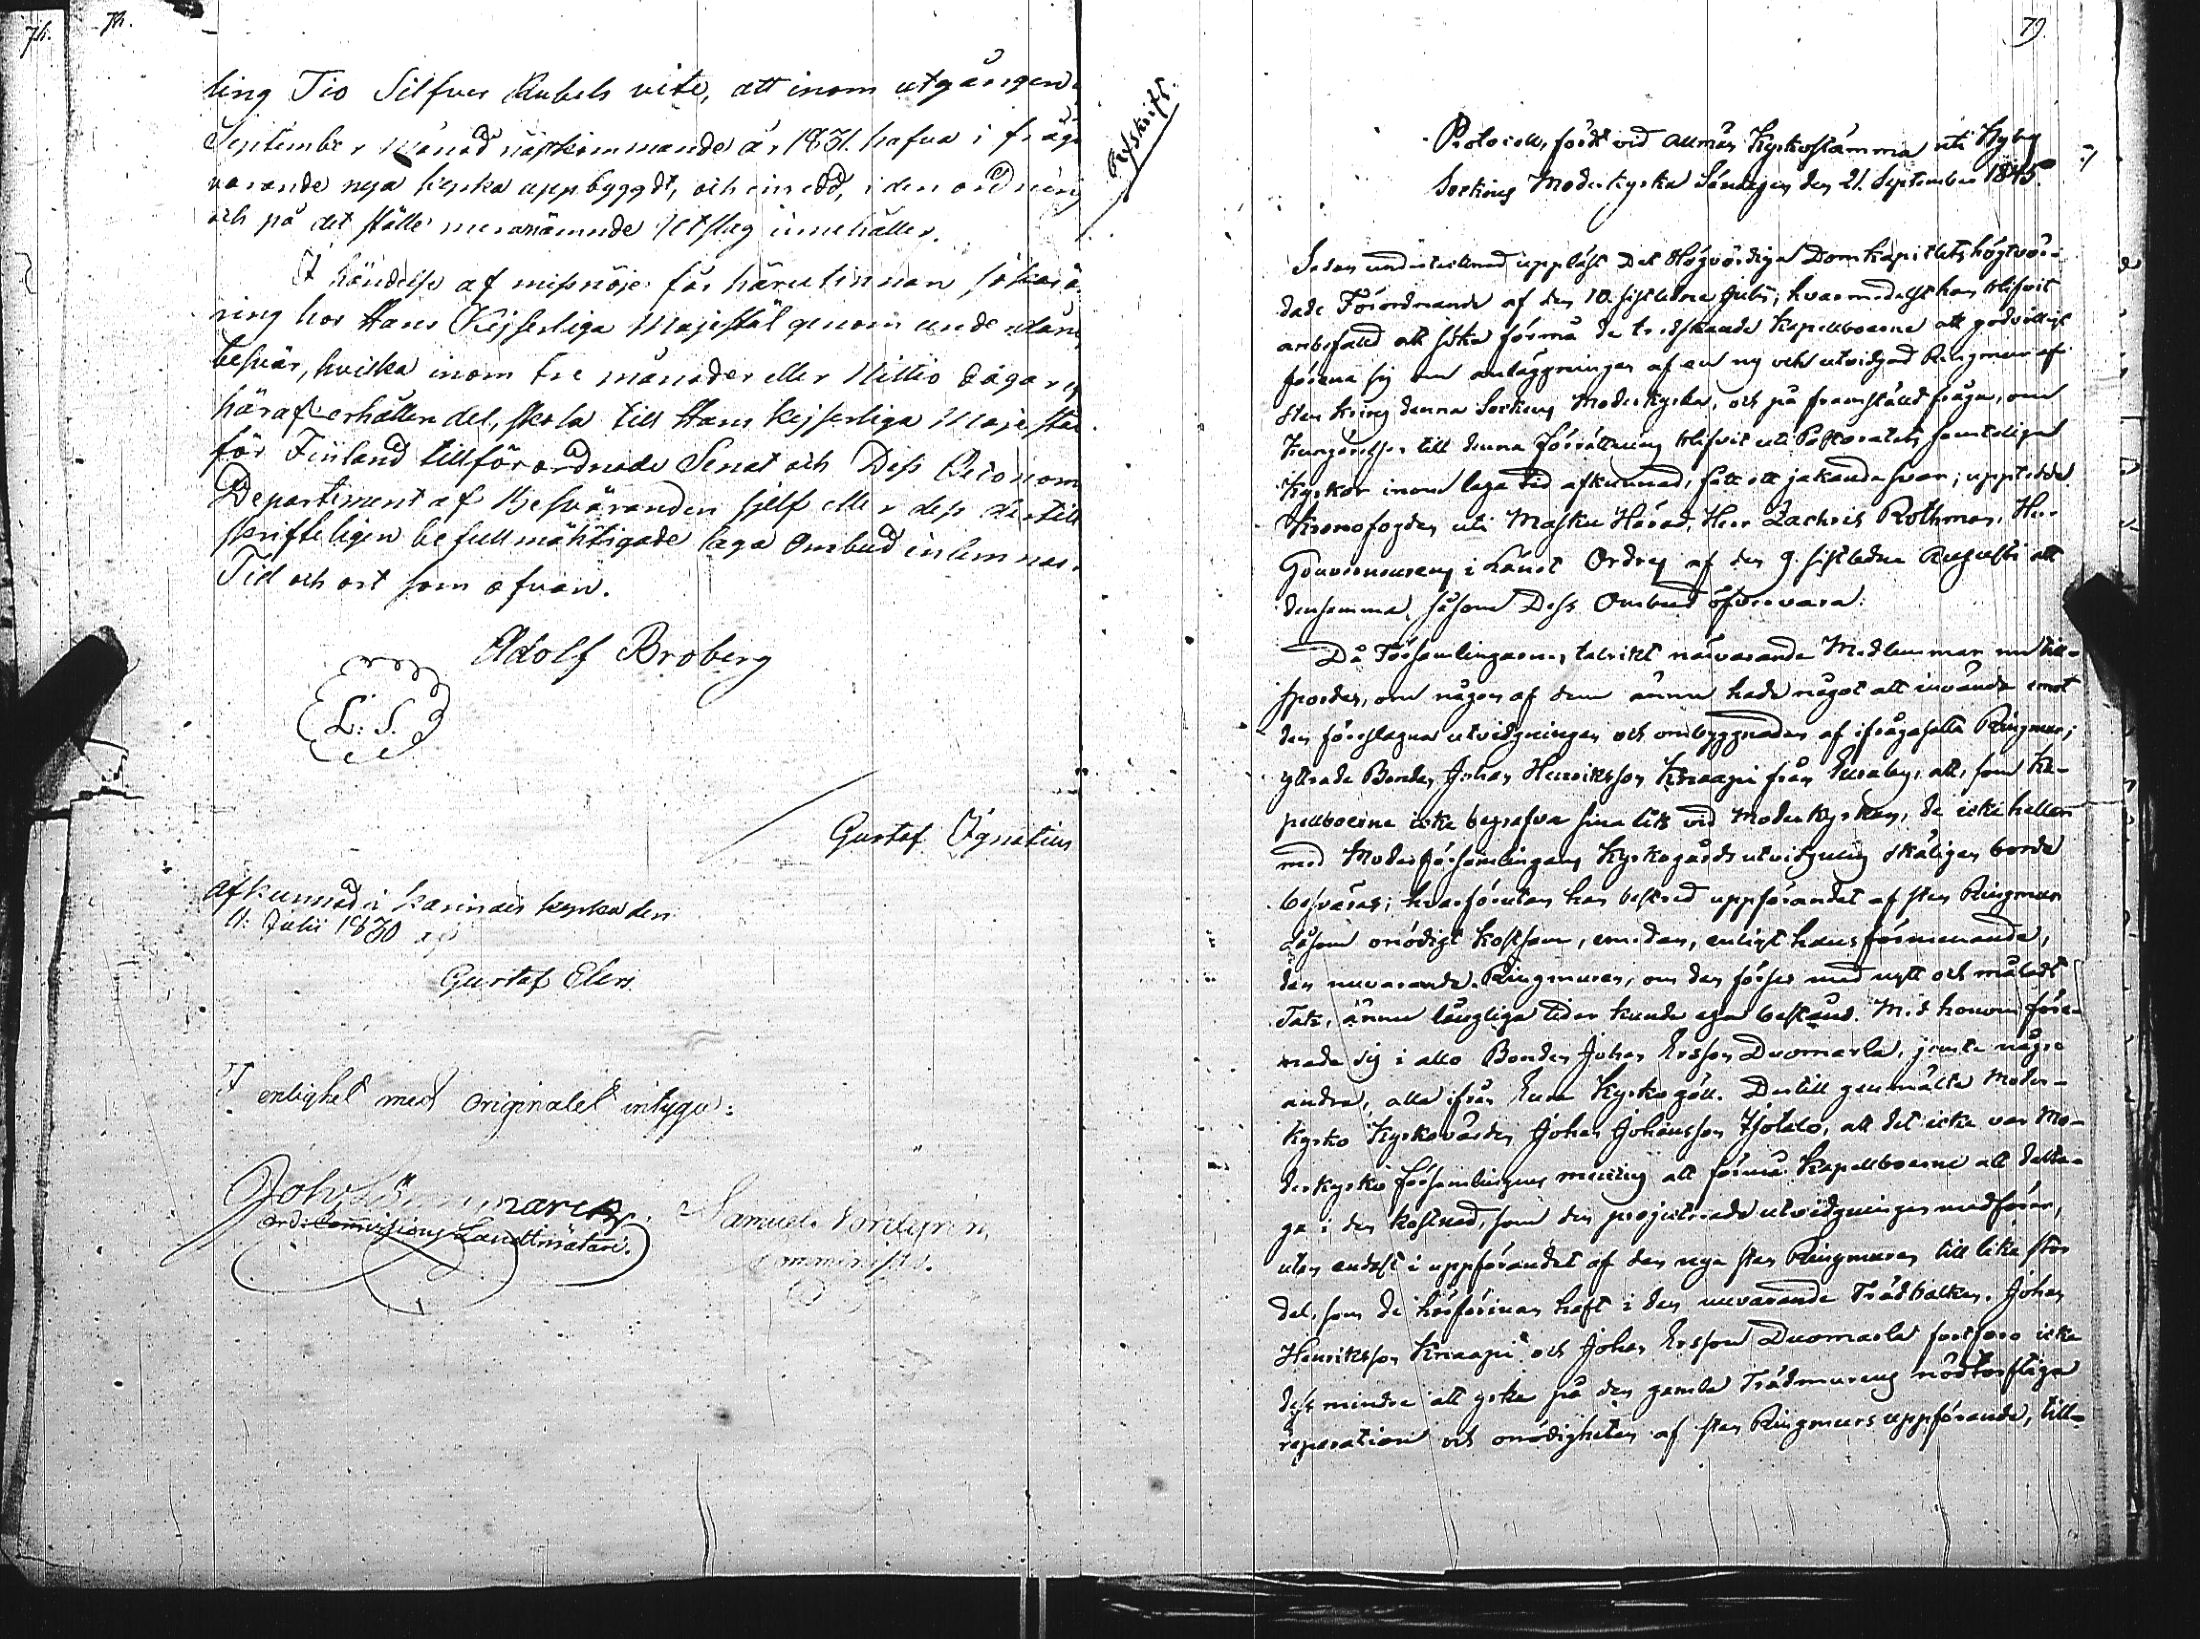 74.
74.
ling Tio Silfver Rubels vite, att inom utgången
September månad nästkommande år 1831. hafva i fråga
varande nya kyrka uppbyggdt, och inredd, i den ordning
och på det ställe meranämnde Utslag innehåller.
I händelse af missnöje får härutinnan sökas
ring hos Hans Kejserliga Majestät genom underdåni
besvär, hvilka inom tre månader eller Nittio dagar
häraf erhållen del, skola till Hans Kejserliga Majestäts
för Finland tillförordnade Senat och Dess Oeconom
Departiment af Besväranden sjelf eller dess dertill
skrifteligen befullmäktigade laga Ombud inlemnas.
Tid och ort som ofvan.
Adolf Broberg
L. S.
Gustaf Ignatius
Afkunnad i Karinais kyrka den
11. Julii 1830 af
Gustaf Elers
I enlighet med Originalet intyga:
Joh.
ord: Commissions Landtmätare.
Samuel Nordgren
Comminister.
Afskrift.
79.
Protocoll, fördt vid allmän Kyrkostämma uti Kyro
Sockens Moderkyrka Söndagen den 21. September 1845.
Sedan undertecknad uppläst Det Högvördiga Domkapitlets högtvör-
dade Förordnande af den 10. sistledne Julii, hvarmedelst han blifvit
anbefalld att söka förmå de tredskande Kapellboerne att godvilligt
förena sig om anläggningen af en ny och utvidgad Ringmur af
sten kring denna Sockens Moderkyrka, och på framställd fråga, om
Kungörelse till denna förrättning blifvit uti Pastoratets samteliga
Kyrkor inom laga tid afkunnad, fått ett jakande svar; upplästes
Kronofogden uti Masku Härad, Herr Zachris Rothman, Herr
Gouverneurens i Länet Ordres af den 9. sistledne Augusti att
densamma, såsom Dess Ombud öfvervara.
Då Församlingarnes talrikt närvarande Medlemmar nu till-
spordes, om någon af dem ännu hade något att invända emot
den föreslagna utvidgningen och ombyggnaden af ifrågasatta Ringmur;
yttrade Bonden Johan Henriksson Knaapi från Euraby, att, som Ka-
pellboerne icke begrafva sina lik vid Moderkyrkan, de icke heller
med Moderförsamlingens Kyrkogårds utvidgning skäligen borde
besväras; hvarförutan han bestred uppförandet af sten Ringmur
såsom onödigt kostsam, emedan, enligt hans förmenande,
den nuvarande Ringmuren, om den förses med nytt och måladt
Tak, ännu långliga tider kunde ega bestånd. Med honom före-
nade sig i allo Bonden Johan Ersson Duomarla, jemte några
andra, alla ifrån Eura Kyrkogäll. Dertill genmälte Moder-
kyrko Kyrkovärden Johan Johansson Isotalo, att det icke var Mo-
derkyrko församlingens mening att förmå Kapellboerne att delta-
ga i den kostnad, som den projecterade utvidgningen medförer,
utan endast i uppförandet af den nya sten Ringmuren till lika stor
del, som de härförinnan haft i den nuvarande Trädbalken. Johan
Henriksson Knaapi och Johan Ersson Duomarla fortforo icke
dess mindre att yrka på den gamla Trädmurens nödtorftiga
reparation och onödigheten af sten Ringmurs uppförande, till-